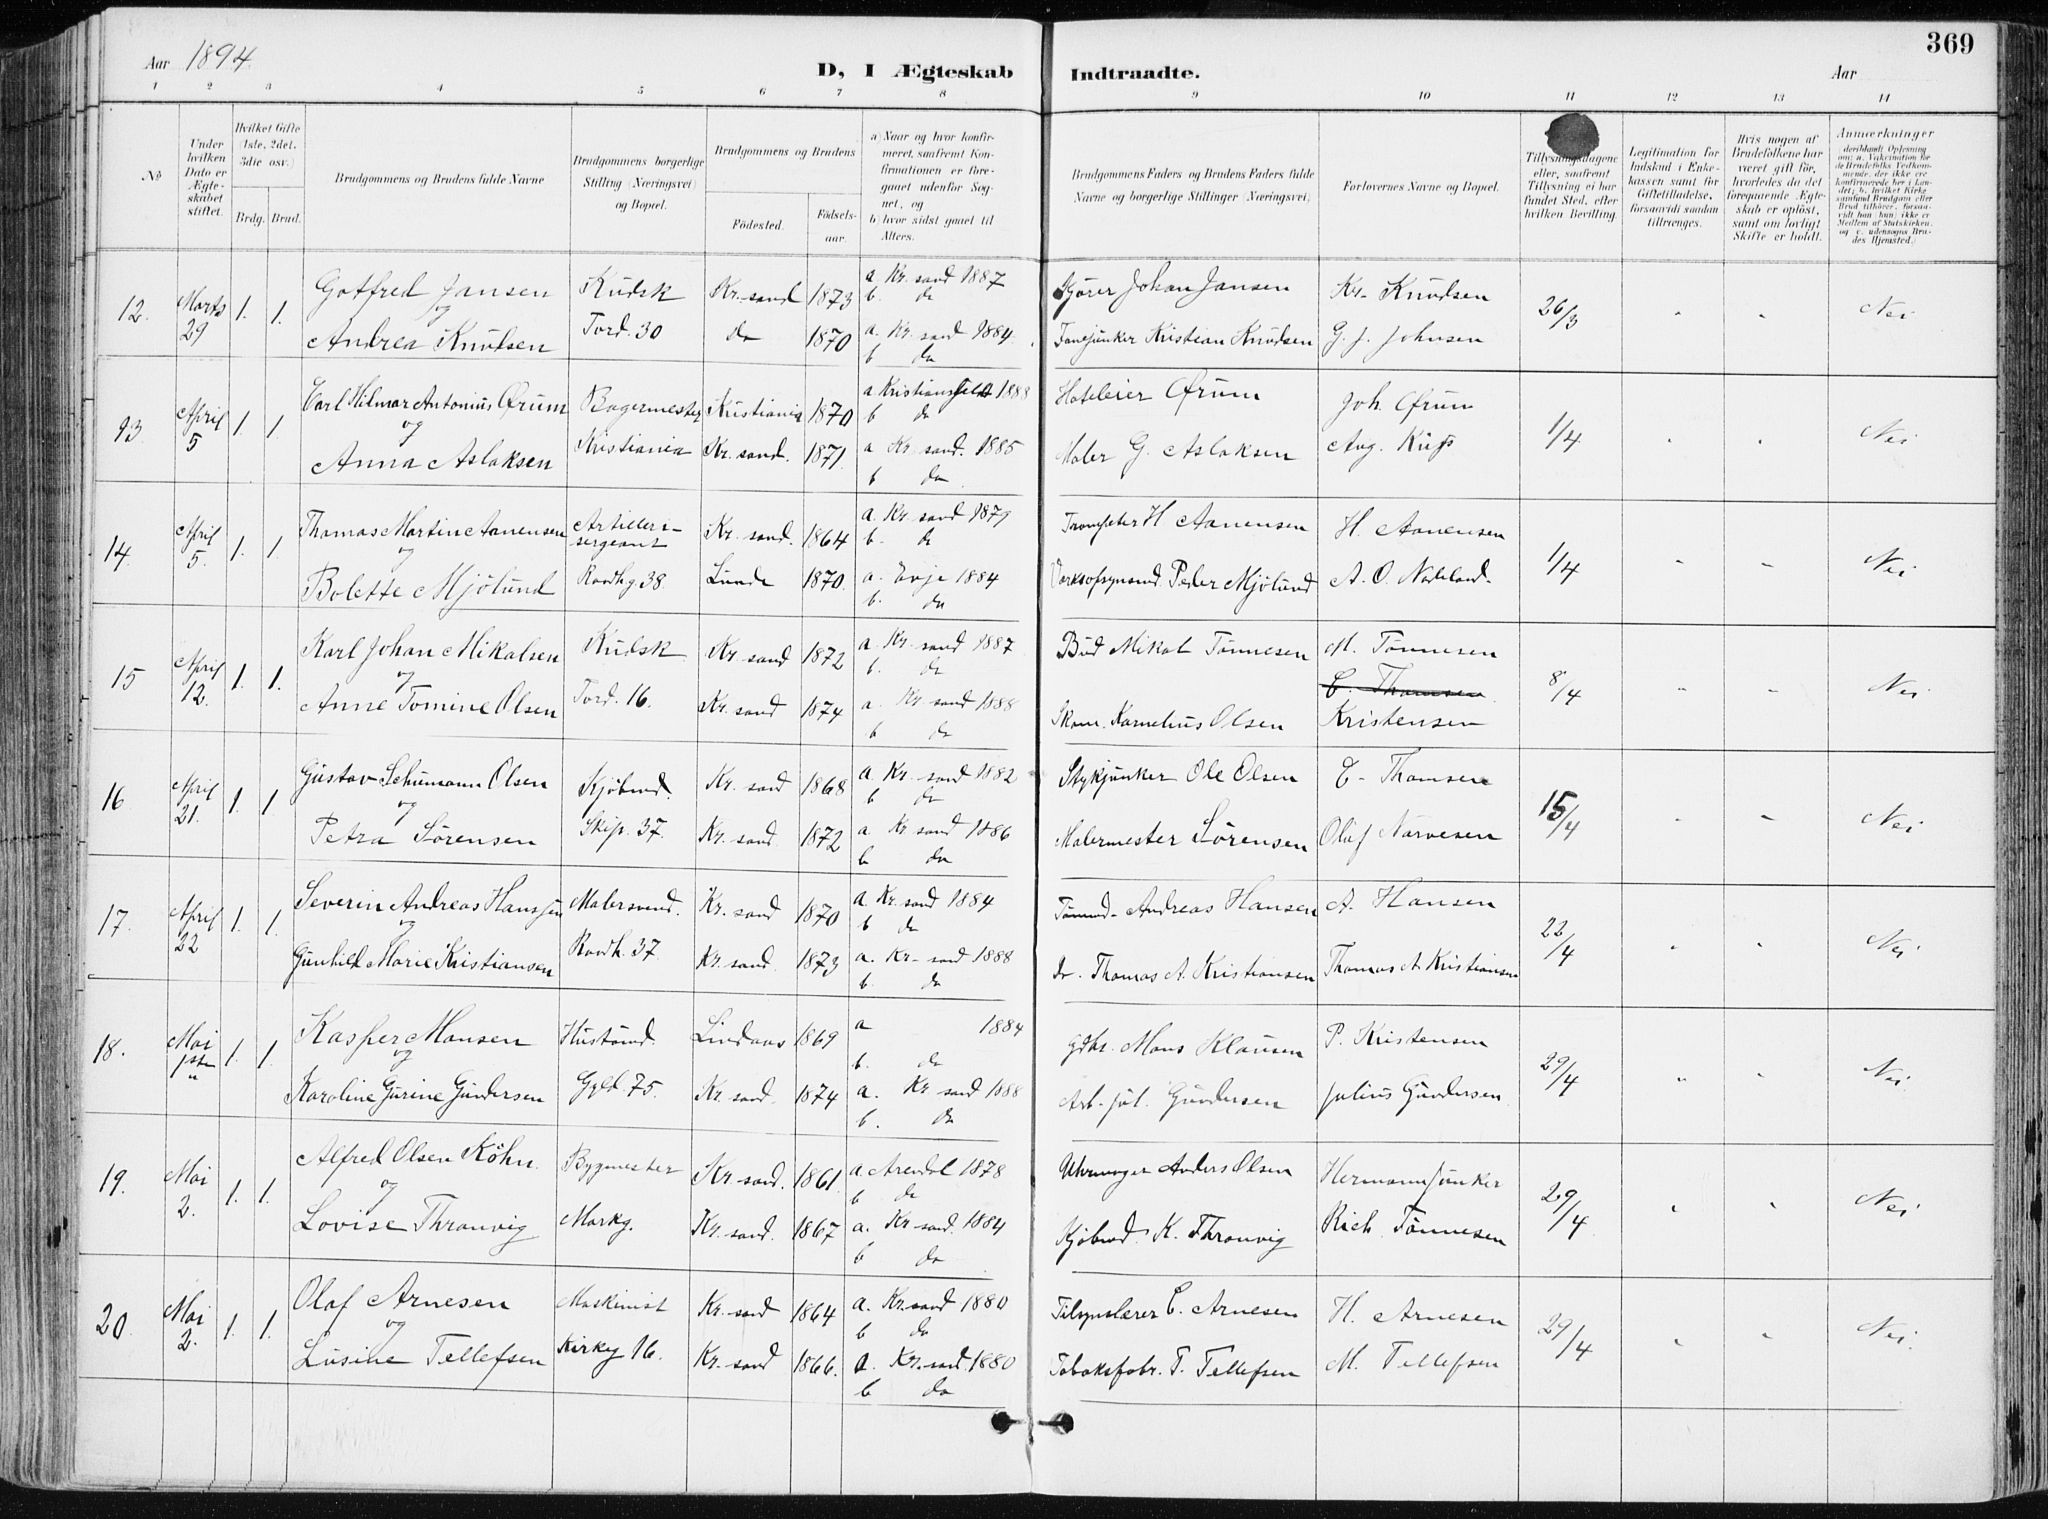 Aar 1894
D, I Ægteskab Indtraadte.
Aar
369
1 2 3 4 5 6 7 8 9 10 11 12 13 14
No
Under hvilken Dato er Ægteskabet stiftet.
Hvilket Gifte (1ste, 2det, 3die osv.)
Brdg. Brud.
Brudgommens og Brudens fulde Navne
Brudgommens borgerlige Stilling (Næringsvei) og Bopæl.
Brudgommens og Brudens
Fødested. Fødselsaar.
a) Naar og hvor konfirmeret, saafremt Konfirmationen er foregaaet udenfor Sognet, og
b) hvor sidst gaaet til Alters.
Brudgommens Faders og Brudens Faders fulde Navne og borgerlige Stillinger (Næringsvei)
Forlovernes Navne og Bopæl.
Tillysningsdagene eller, saafremt Tillysning ei har fundet Sted, efter hvilken Bevilling.
Legitimation for Indskud i Enkekassen samt for Giftetilladelse, forsaavidt saadan tiltrænges.
Hvis nogen af Brudefolkene har været gift før, hvorledes da det foregaaende Ægteskab er opløst, samt om lovligt Skifte er holdt.
Anmærkninger
12. Marts 29 1. 1. Gotfred Jansen Kudsk Kr.sand 1873 a Kr. sand 1887 Kjører Johan Jansen Kr. Knudsen 26/3 " " Nei
og b. do
Andrea Knudsen Tord. 30 do 1870 a. Kr. sand 1884. Fanejunker Kristian Knudsen G. J. Johnsen
b do
13. April 5 1. 1. Carl Hilmar Antonius Ørum Bagermester Kristiania 1870 a Kristiansfeld 1888 Hoteleier Ørum Joh. Ørum 1/4 " " Nei
og b do
Anna Aslaksen Kristiania Kr. sand. 1871. a Kr. sand. 1885 Maler G. Aslaksen Aug.
b do
14. April 5. 1. 1. Thomas Martin Aanensen Artillerisergeant Kr. sand. 1864 a. Kr. sand 1879 Trompeter H Aanensen H. Aanensen 1/4 " " Nei
og b. do
Bolette Mjølund Raadhg. 38. Lunde 1870. a. Evje 1884 Peder Mjølund A. O. Nateland.
b. do
15 April 12. 1. 1. Karl Johan Mikalsen Kudsk Kr. sand 1872 a. Kr. sand 1887 Bud Mikal Tønnesen M. Tønnesen 8/4 " " Nei
og b. do C. Thomsen
Anne Tomine Olsen Tord. 16. Kr. sand 1874 a. Kr. sand 1888 Skom. Kornelius Olsen Kristensen
b do
16 April 21. 1. 1 Gustav Schumann Olsen Kjøbmd. Kr. sand 1868 a. Kr. sand 1882 Stykjunker Ole Olsen C. Thomsen 15/4 " " Nei
og b do
Petra Sørensen Skip. 37. Kr. sand 1872 a Kr sand 1886 Malermester Sørensen Olaf Narvesen
b do
17. April 22 1. 1. Severin Andreas Hanssen Malersvend. Kr. sand 1870 a Kr. sand 1884 Tømmd. Andreas Hansen A. Hansen 22/4 " " Nei
og b do
Gunhild Marie Kristiansen Raadh. 37. Kr. sand. 1873 a. Kr. sand 1888 do. Thomas A. Kristiansen Thomas A Kristiansen
b. do
18. Mai 1ste 1. 1. Kasper Mansen Hustømd. Lindaas 1869 a 1884 Gdbr. Mons Klausen P. Kristensen 29/4 " " Nei.
og b. do
Karoline Gurine Gundersen Gyld. 75. Kr. sand. 1874 a. Kr. sand 1888 Arb. Jul. Gundersen Julius Gundersen.
b. do
19. Mai 2. 1. 1. Alfred Olsen Köhn. Bygmester Kr. sand. 1861. a. Arendal 1878 Uhrmager Anders Olsen Hermann Junker 29/4 " " Nei
og b do
Lovise Thronvig Markg. Kr. sand. 1867 a. Kr. sand. 1884 Kjøbmd. K. Thronvig Rich. Tønnesen
b do
20. Mai 2. 1. 1. Olaf Arnesen Maskinist Kr. sand 1864 a. Kr. sand 1880 Tilsynslærer E. Arnesen H. Arnesen 29/4 " " Nei.
og b do
Lusine Tellefsen Kirkeg 16. Kr. sand 1866. a. Kr. sand. 1880 Tobaksfabr. T. Tellefsen M. Tellefsen
b do